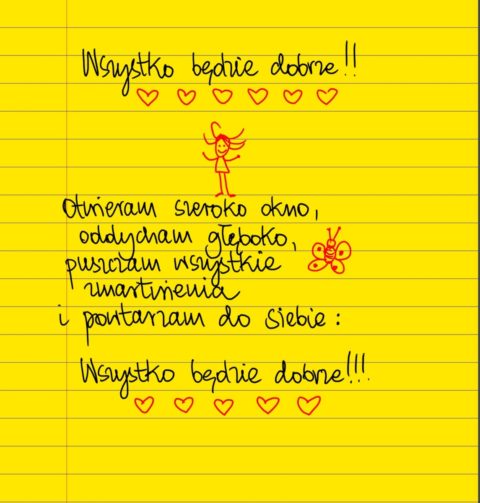 Wszystko będzie dobrze!!
Otwieram szeroko okno,
oddycham głęboko,
puszczam wszystkie
zmartwienia
i powtarzam do siebie:
Wszystko będzie dobrze!!!